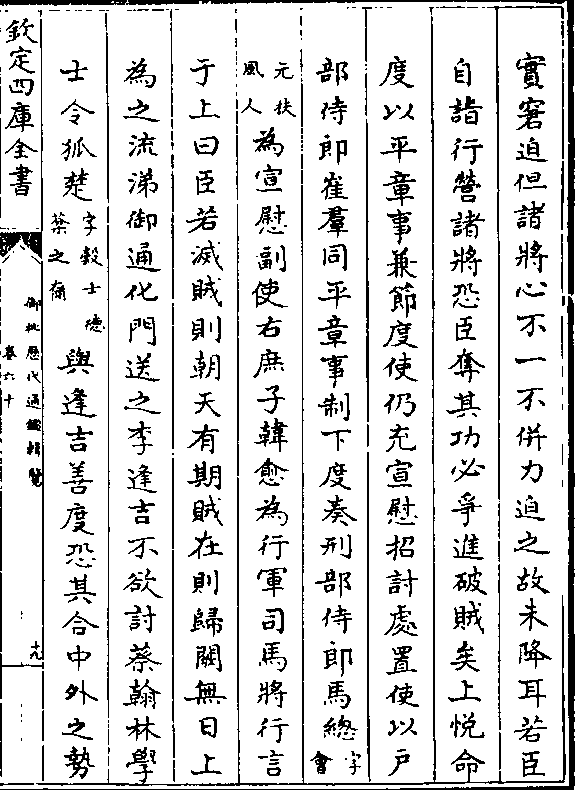 實窘迫但諸將心不一不併力迫之故未降耳若臣
自詣行營諸將恐臣奪其功必爭進破賊矣上悅命
度以平章事兼節度使仍充宣慰招討處置使以戶
部侍郎崔羣同平章事制下度奏刑部侍郎馬總字會
元扶風人為宣慰副使右庶子韓愈為行軍司馬將行言
于上曰臣若滅賊則朝天有期賊在則歸闕無日上
為之流涕御通化門送之李逢吉不欲討蔡翰林學
士令狐楚字殼士德棻之裔與逢吉善度恐其合中外之勢
欽定四庫全書
御批歷代通鑑輯覽
卷六十
十九